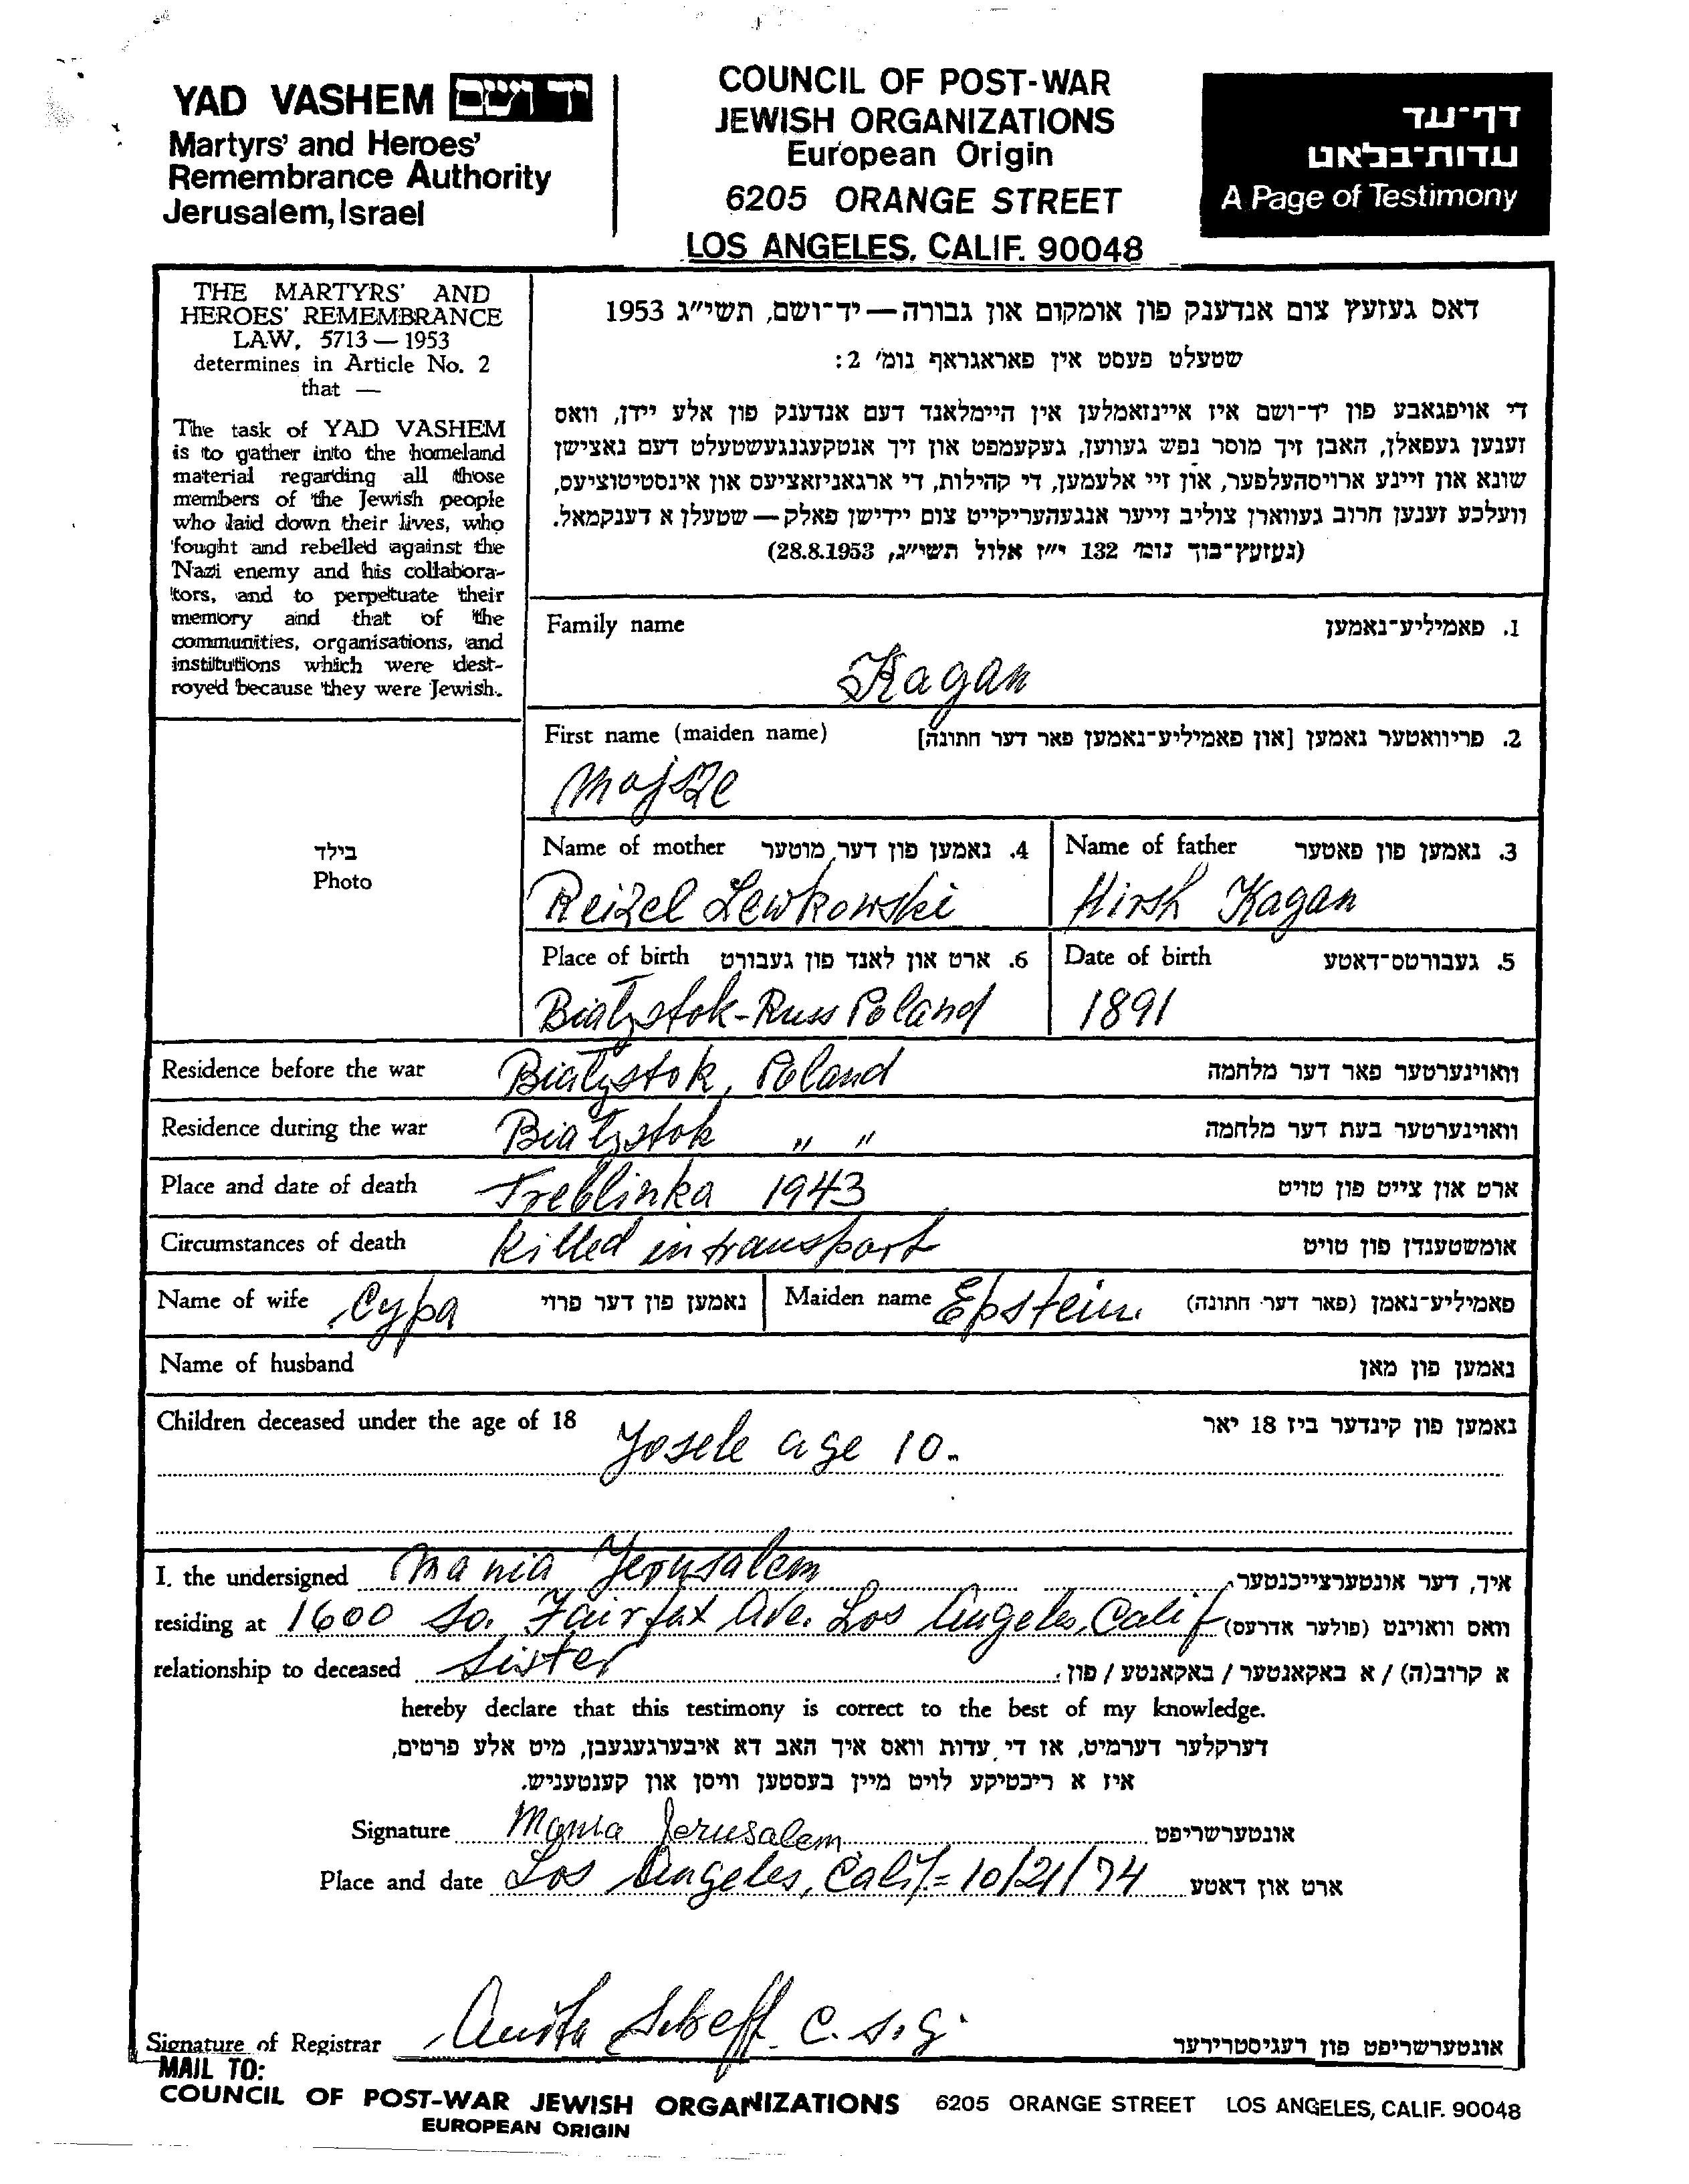 YAD VASHEM יד ושם
Martyrs' and Heroes'
Remembrance Authority
Jerusalem, Israel
COUNCIL OF POST-WAR
JEWISH ORGANIZATIONS
European Origin
6205 ORANGE STREET
LOS ANGELES, CALIF. 90048
דף-עד
עדות-בלאט
A Page of Testimony
THE MARTYRS' AND
HEROES' REMEMBRANCE
LAW, 5713 — 1953
determines in Article No. 2
that —
The task of YAD VASHEM
is to gather into the homeland
material regarding all those
members of the Jewish people
who laid down their lives, who
fought and rebelled against the
Nazi enemy and his collabora-
tors, and to perpetuate their
memory and that of the
communities, organisations, and
institutions which were dest-
royed because they were Jewish.
דאס געזעץ צום אנדענק פון אומקום און גבורה — יד-ושם, תשי"ג 1953
שטעלט פעסט אין פאראגראף נומ' 2:
די אויפגאבע פון יד-ושם איז איינזאמלען אין היימלאנד דעם אנדענק פון אלע יידן, וואס
זענען געפאלן, האבן זיך מוסר נפש געווען, געקעמפט און זיך אנטקעגנגעשטעלט דעם נאצישן
שונא און זיינע ארויסהעלפער, און זיי אלעמען, די קהילות, די ארגאניזאציעס און אינסטיטוציעס,
וועלכע זענען חרוב געווארן צוליב זייער אנגעהעריקייט צום יידישן פאלק — שטעלן א דענקמאל.
(געזעץ-בוך נומ' 132 י"ז אלול תשי"ג, 28.8.1953)
Family name 1. פאמיליע-נאמען
Kagan
First name (maiden name) 2. פריוואטער נאמען [און פאמיליע-נאמען פאר דער חתונה]
Majsze
בילד
Photo
Name of mother 4. נאמען פון דער מוטער Name of father 3. נאמען פון פאטער
Reizel Lewkowski Hirsh Kagan
Place of birth 6. ארט און לאנד פון געבורט Date of birth 5. געבורטס-דאטע
Białystok-Russ Poland 1891
Residence before the war Białystok, Poland וואוינערטער פאר דער מלחמה
Residence during the war Białystok " " וואוינערטער בעת דער מלחמה
Place and date of death Treblinka 1943 ארט און צייט פון טויט
Circumstances of death Killed in transport אומשטענדן פון טויט
Name of wife Cypa נאמען פון דער פרוי Maiden name Epstein פאמיליע-נאמן (פאר דער חתונה)
Name of husband נאמען פון מאן
Children deceased under the age of 18 Yosele age 10. נאמען פון קינדער ביז 18 יאר
I. the undersigned Mania Jerusalem איד, דער אונטערצייכנטער,
residing at 1600 So. Fairfax Ave. Los Angeles, Calif וואס וואוינט (פולער אדרעס)
relationship to deceased Sister א קרוב(ה) / א באקאנטער / באקאנטע / פון
hereby declare that this testimony is correct to the best of my knowledge.
דערקלער דערמיט, אז די עדות וואס איך האב דא איבערגעגעבן, מיט אלע פרטים,
איז א ריכטיקע לויט מיין בעסטען וויסן און קענטעניש.
Signature Mania Jerusalem אונטערשריפט
Place and date Los Angeles, Calif= 10/21/74 ארט און דאטע
Signature of Registrar Anita C.S.G. אונטערשריפט פון רעגיסטרירער
MAIL TO:
COUNCIL OF POST-WAR JEWISH ORGANIZATIONS 6205 ORANGE STREET LOS ANGELES, CALIF. 90048
EUROPEAN ORIGIN